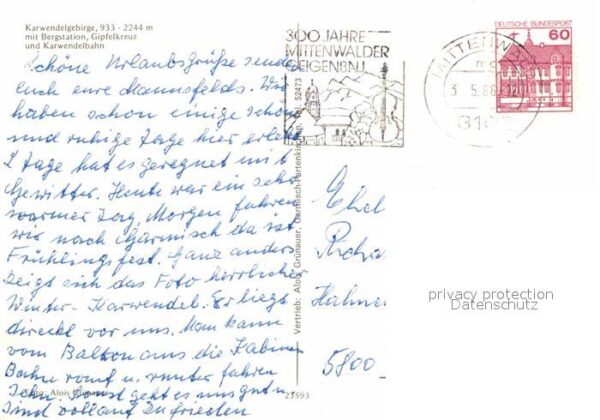 Karwendelgebirge, 933 - 2244 m
mit Bergstation, Gipfelkreuz
und Karwendelbahn
Schöne Urlaubsgrüße senden
euch eure Mannsfelds. Wir
haben schon einige schöne
und ruhige Tage hier erlebt
2 Tage hat es geregnet mit
Gewitter. Heute war ein sehr
warmer Tag, Morgen fahren
wir nach Garmisch da ist
Frühlingsfest. Ganz anders
zeigt sich das Foto herrlicher
Winter. Karwendel. Er liegt
direckt vor uns. Man kann
vom Balkon aus die Kabinen
Bahn rauf u. runter fahren
sehn. Sonst geht es uns gut u.
sind voll auf zufrieden
Foto: Alois Grünauer
23593
Vertrieb: Alois Grünauer, Garmisch-Partenkirchen, Tel. 52473
300 JAHRE
MITTENWALDER
GEIGENBAU
MITTENWALD
3. 5.86
8102
DEUTSCHE BUNDESPOST
60
Ehel
Richa
Hahner
5800
privacy protection
Datenschutz